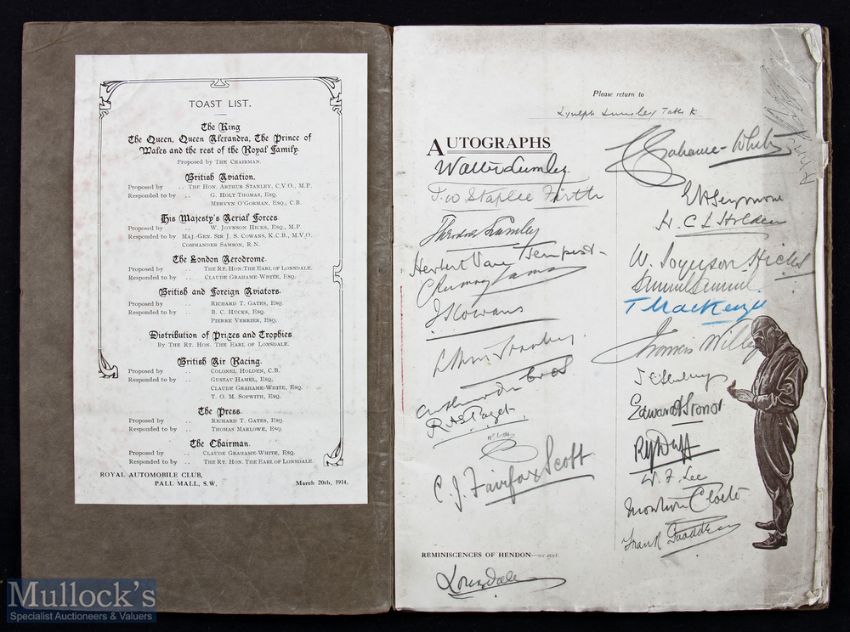 TOAST LIST.
The King
The Queen, Queen Alexandra, The Prince of
Wales and the rest of the Royal Family.
Proposed by THE CHAIRMAN.
British Aviation.
Proposed by .. THE HON. ARTHUR STANLEY, C.V.O., M.P.
Responded to by .. G. HOLT THOMAS, ESQ.
MERVYN O'GORMAN, ESQ., C.B.
His Majesty's Aerial Forces.
Proposed by .. W. JOYNSON HICKS, ESQ., M.P.
Responded to by MAJ.-GEN. SIR J. S. COWANS, K.C.B., M.V.O.
COMMANDER SAMSON, R.N.
The London Aerodrome.
Proposed by .. THE RT. HON. THE EARL OF LONSDALE.
Responded to by .. CLAUDE GRAHAME-WHITE, ESQ.
British and Foreign Aviators.
Proposed by .. RICHARD T. GATES, ESQ.
Responded to by .. B. C. HUCKS, ESQ.
PIERRE VERRIER, ESQ.
Distribution of Prizes and Trophies
By THE RT. HON. THE EARL OF LONSDALE.
British Air Racing.
Proposed by .. COLONEL HOLDEN, C.B.
Responded to by .. GUSTAV HAMEL, ESQ.
CLAUDE GRAHAME-WHITE, ESQ.
T. O. M. SOPWITH, ESQ.
The Press.
Proposed by .. RICHARD T. GATES, ESQ.
Responded to by .. THOMAS MARLOWE, ESQ.
The Chairman.
Proposed by .. CLAUDE GRAHAME-WHITE, ESQ.
Responded to by .. THE RT. HON. THE EARL OF LONSDALE.
ROYAL AUTOMOBILE CLUB,
PALL MALL, S.W. March 20th, 1914.
Please return to
AUTOGRAPHS
Grahame-White
Walter Lumley
T. W. Staplee Firth
E H Seymour
H. C. L. Holden
Theodore Lumley
Herbert Vane Tempest
W. Joynson Hicks
J S Cowans
T Mackenzie
Francis Willey
Edward Stonor
R A Paget
W. F. Lee
C. J. Fairfax Scott
Montrion Cloete
Frank
REMINISCENCES OF HENDON
Lonsdale
Mullock's
Specialist Auctioneers & Valuers